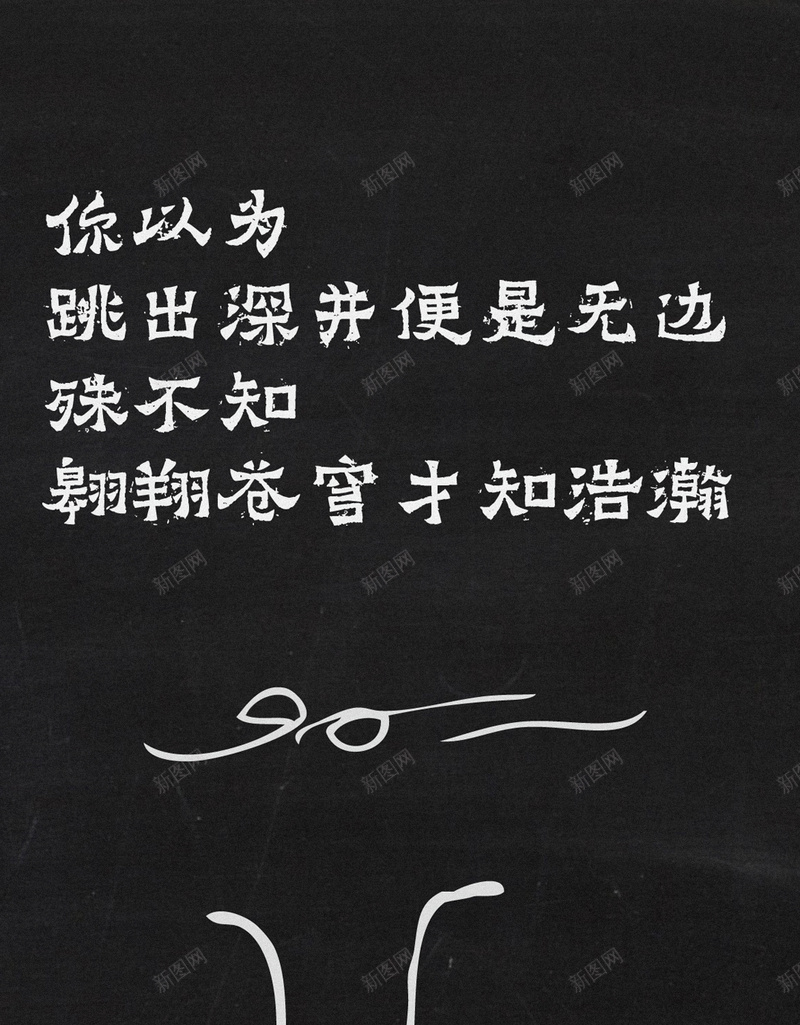 你以为
跳出深井便是无边
殊不知
翱翔苍穹才知浩瀚
新图网